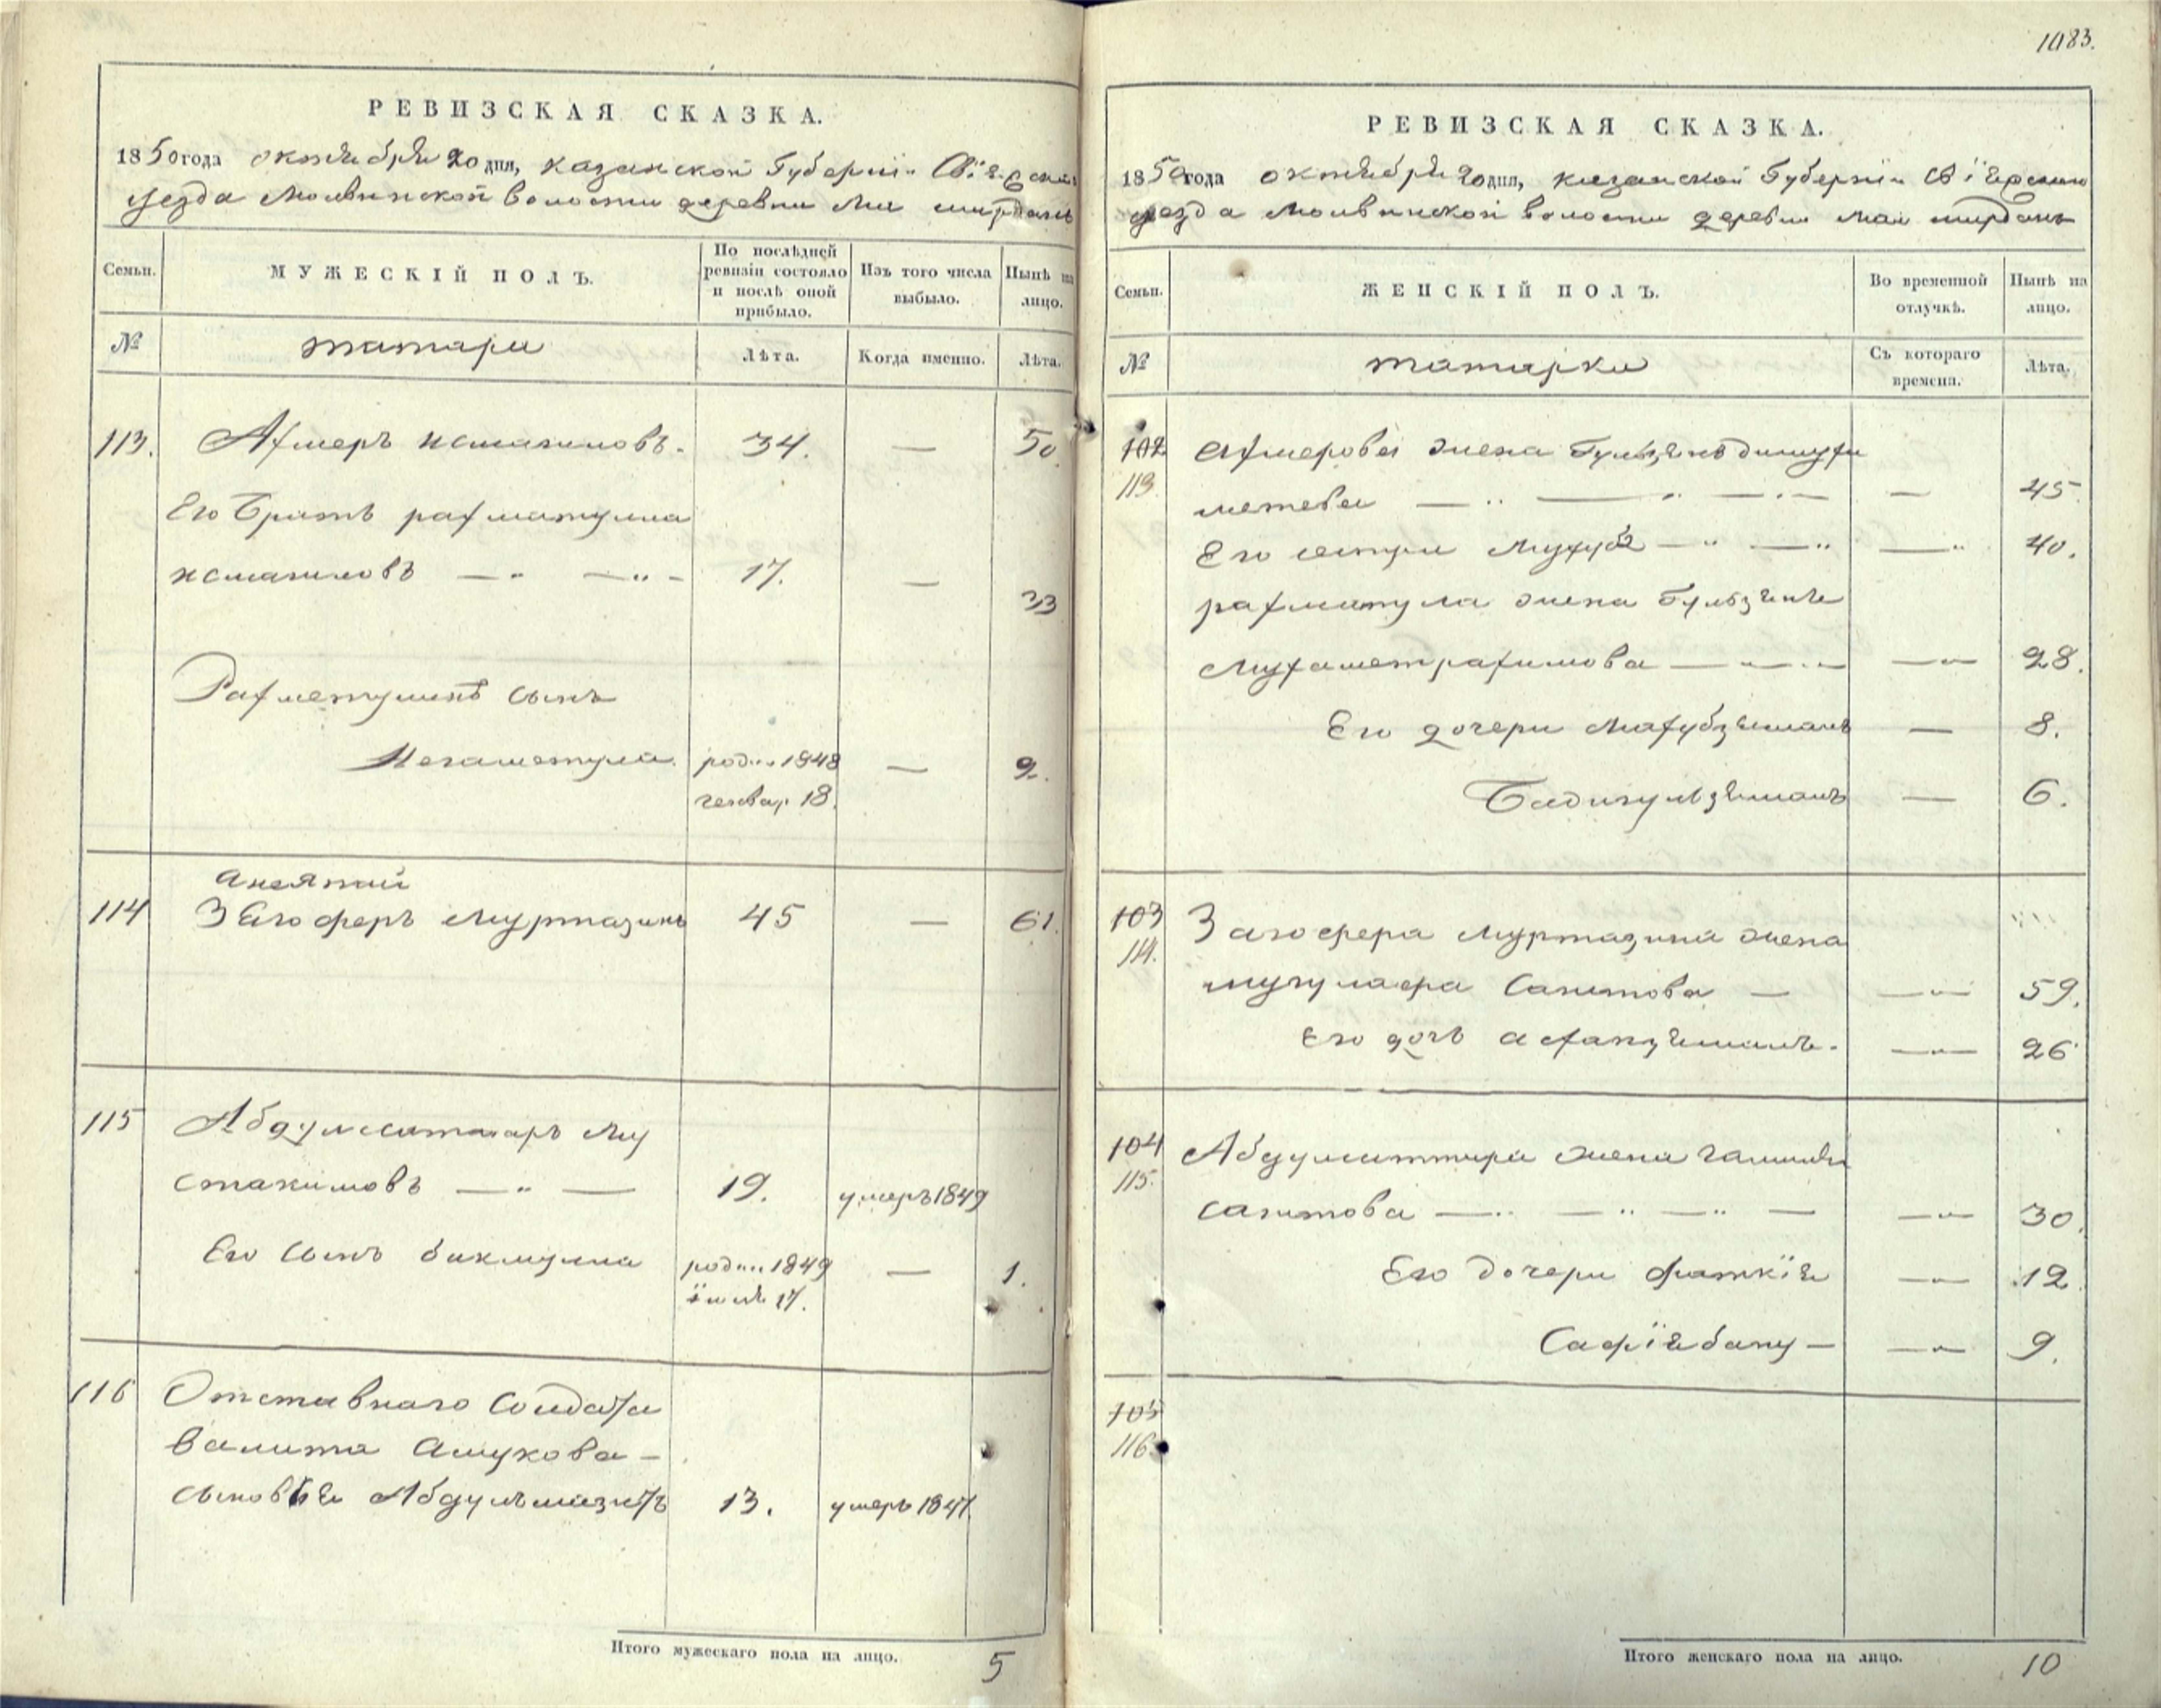 1083.
РЕВИЗСКАЯ СКАЗКА.
1850 года октября 20 дня, казанской Губерніи
уезда Молвинской волости деревни
Семьи.
МУЖЕСКІЙ ПОЛЪ.
По послѣдней ревизіи состояло и послѣ оной прибыло.
Изъ того числа выбыло.
Нынѣ на лицо.
№
татары
Лѣта.
Когда именно.
Лѣта.
113.
Ахмеръ исмагиловъ.
34.
—
50
Его братъ рахматулла
исмагиловъ — „ — „ -
17.
—
33
Рахметуллы сынъ
родил 1848
генвар 18.
—
2.
114
З Ягоферъ Муртазинъ
45
—
61.
115
Абдулсаттаръ Му
стакимовъ — „ —
19.
умеръ 1849
Его сынъ бикмулла
родил 1849
іюля 17.
—
1.
116
Отставнаго солдата
валита Ашукова —
сыновья Абдулъмазитъ
13.
умеръ 1847.
Итого мужескаго пола на лицо.
5
РЕВИЗСКАЯ СКАЗКА.
1850 года октября 20 дня, казанской Губерніи
уезда Молвинской волости деревни
Семьи.
ЖЕНСКІЙ ПОЛЪ.
Во временной отлучкѣ.
Нынѣ на лицо.
№
татарки
Съ котораго времени.
Лѣта.
102
113.
Ахмерова жена
метева — „ — „ — „ —
—
45.
Его сестра — „ — „
— „
40.
рахматулла жена
Мухаметрахимова — „ — „ —
— „ —
28.
Его дочери Махубзямалъ
—
8.
Бадигульзямалъ
—
6.
103
114.
Загофера Муртазина жена
Сагитова —
— „ —
59.
Его дочь
— „ —
26
104
115.
Абдулсаттара жена
сагитова — „ — „ — „ —
— „ —
30.
Его дочери Фаткія
— „ —
12
Сафіябану —
— „ —
9.
105
116.
Итого женскаго пола на лицо.
10